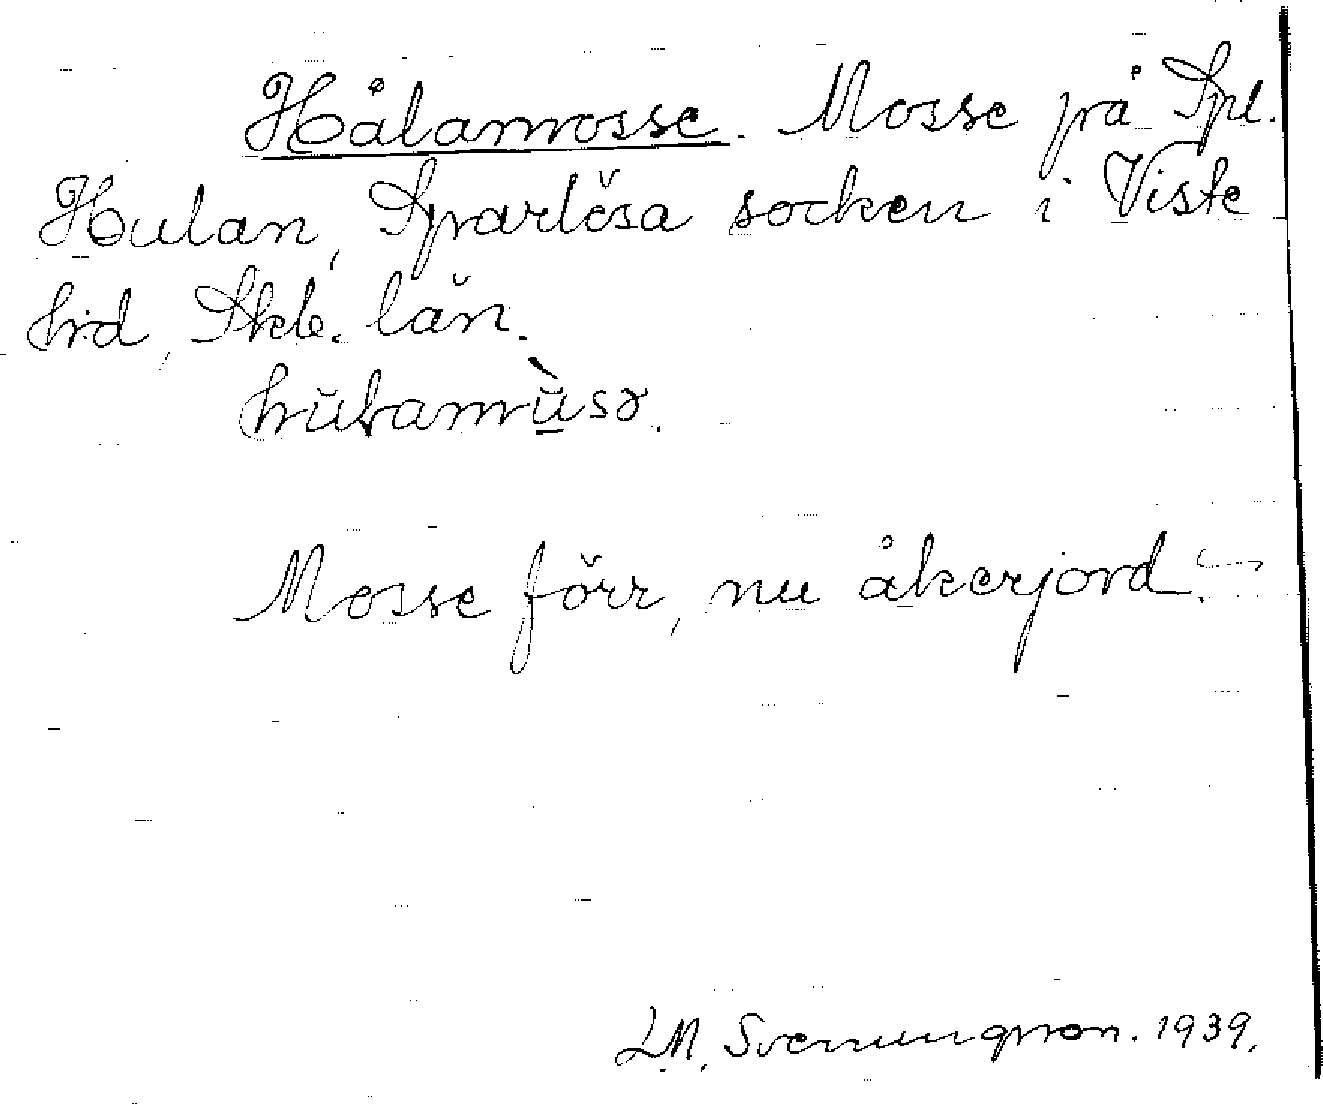 Hålamosse. Mosse på Spl.
Hulan, Sparlösa socken i Viste
hrd, Skb. län.
Mosse förr, nu åkerjord.
L.M. Svenungsson. 1939.